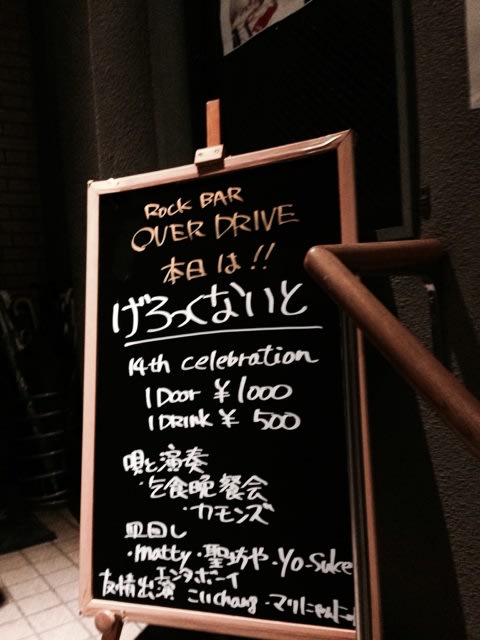 Rock BAR
OVER DRIVE
本日は!!
げろっくないと
14th celebration
1 Door ¥1000
1 DRINK ¥ 500
唄と演奏
・乞食晩餐会
・カモンズ
皿回し
・matty・聖坊や・Yo-Suke
エンタボーイ
友情出演 こいchang・マツにゃんにゃ